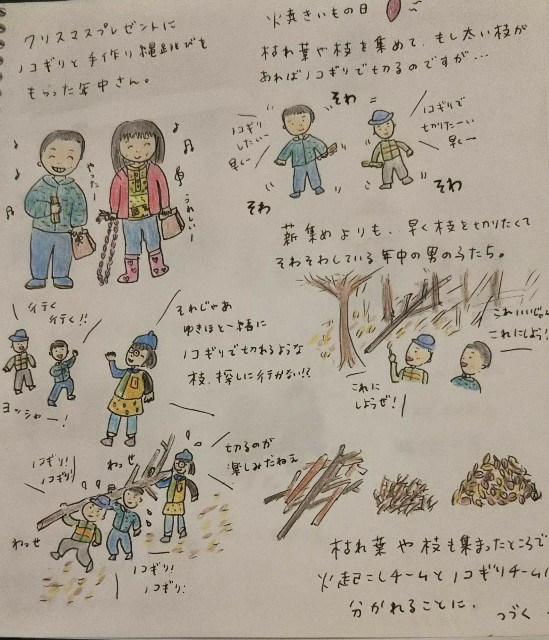 クリスマスプレゼントに
ノコギリと手作り縄跳びを
もらった年中さん。
やったー
うれしいー
火焼きいもの日
枯れ葉や枝を集めて、もし太い枝が
あればノコギリで切るのですが…
そわ
ノコギリ
したい
早く
ノコギリで
切りたーい
早く
そわ
そわ
薪集めよりも、早く枝を切りたくて
そわそわしている年中の男のうたち。
行く
行く!!
ヨッシャー!
それじゃあ
ゆきほと一緒に
ノコギリで切れるような
枝、探しに行かない!?
これいいじゃん
これにしよう!
これに
しようぜ!
ノコギリ!
ノコギリ!
わっせ
わっせ
切るのが
楽しみだねぇ
ノコギリ!
ノコギリ!
枯れ葉や枝も集まったところで
火起こしチームとノコギリチームに
分かれることに。
つづく